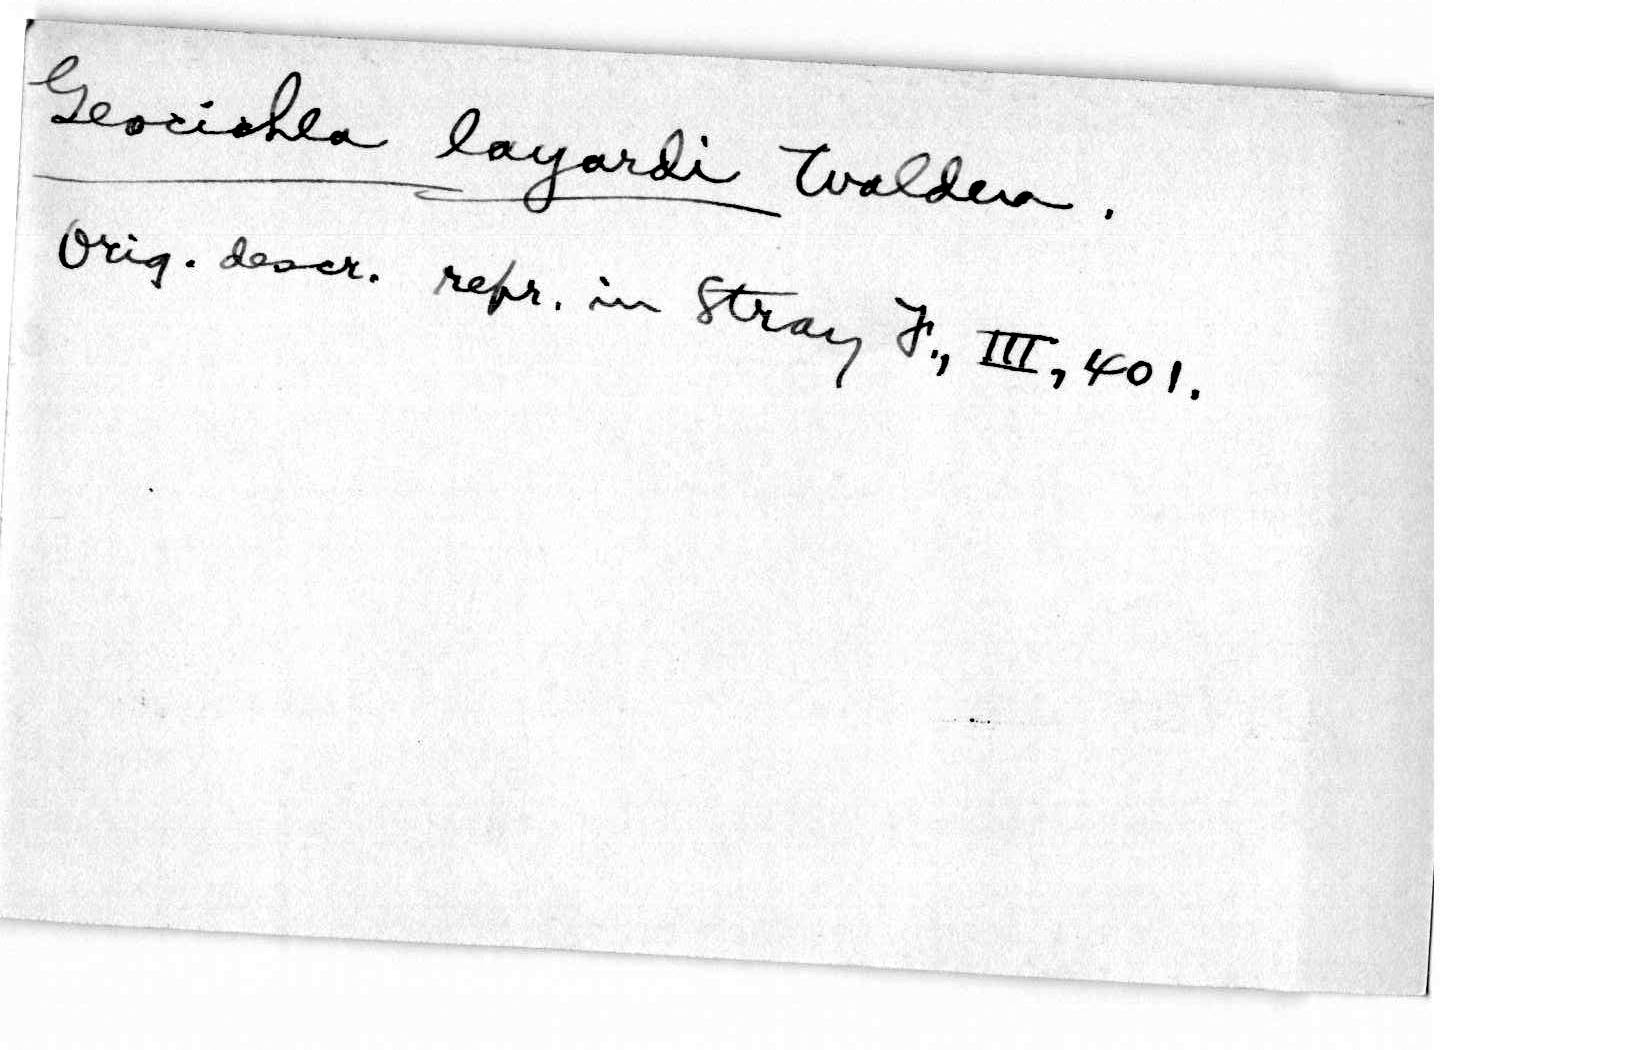 Geocichla layardi Walden.
Orig. descr. repr. in Stray F., III, 401.